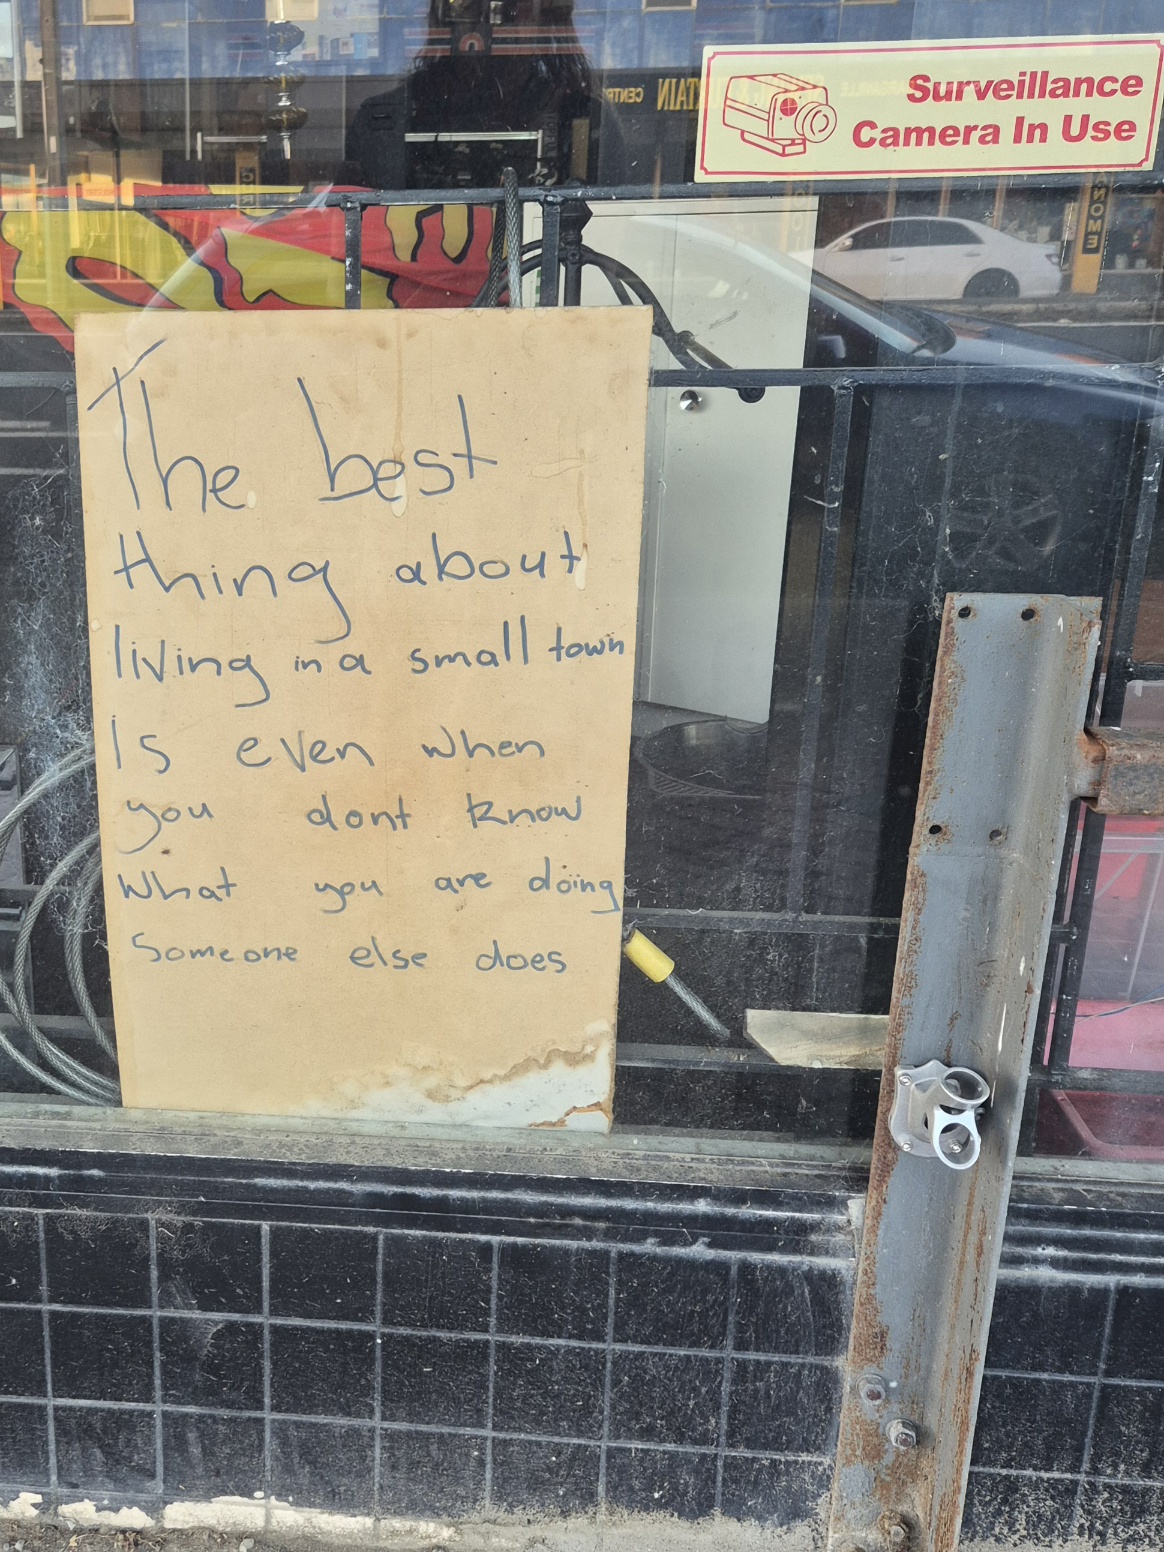 Surveillance
Camera In Use
The best
thing about
living in a small town
Is even when
you dont know
what you are doing
Someone else does